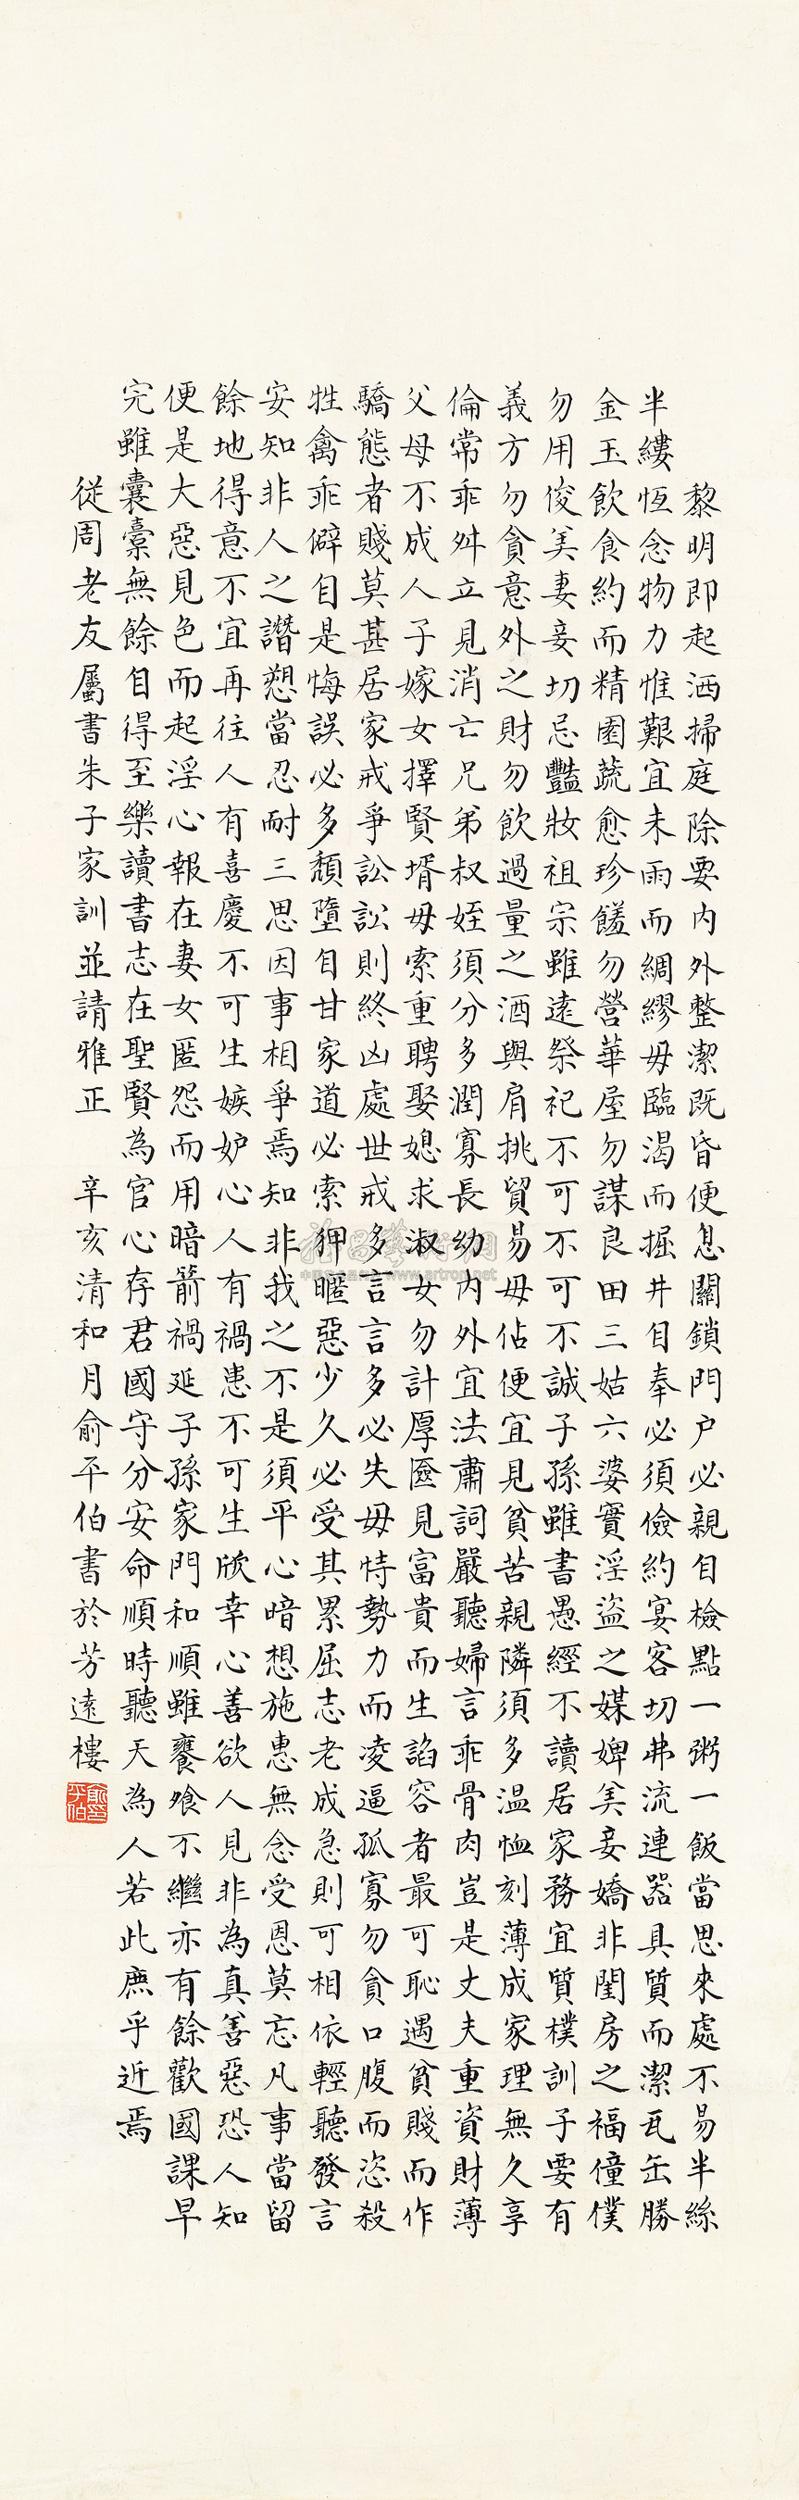 黎明即起洒掃庭除要內外整潔既昏便息關鎖門户必親自檢點一粥一飯當思來處不易半絲
半縷恆念物力惟艱宜未雨而綢繆毋臨渴而掘井自奉必須儉約宴客切弗流連器具質而潔瓦缶勝
金玉飲食約而精園蔬愈珍饈勿營華屋勿謀良田三姑六婆實淫盜之媒婢美妾嬌非閨房之福僮僕
勿用俊美妻妾切忌豔妝祖宗雖遠祭祀不可不可不誠子孫雖書愚經不讀居家務宜質樸訓子要有
義方勿貪意外之財勿飲過量之酒與肩挑貿易毋佔便宜見貧苦親隣須多温恤刻薄成家理無久享
倫常乖舛立見消亡兄弟叔姪須分多潤寡長幼內外宜法肅詞嚴聽婦言乖骨肉豈是丈夫重資財薄
父母不成人子嫁女擇賢壻毋索重聘娶媳求淑女勿計厚匳見富貴而生諂容者最可恥遇貧賤而作
驕態者賤莫甚居家戒爭訟訟則終凶處世戒多言言多必失毋恃勢力而凌逼孤寡勿貪口腹而恣殺
牲禽乖僻自是悔誤必多頹墮自甘家道必索狎暱惡少久必受其累屈志老成急則可相依輕聽發言
安知非人之譖愬當忍耐三思因事相爭焉知非我之不是須平心暗想施惠無念受恩莫忘凡事當留
餘地得意不宜再往人有喜慶不可生嫉妒心人有禍患不可生欣幸心善欲人見非為真善惡恐人知
便是大惡見色而起淫心報在妻女匿怨而用暗箭禍延子孫家門和順雖饔飧不繼亦有餘歡國課早
完雖囊橐無餘自得至樂讀書志在聖賢為官心存君國守分安命順時聽天為人若此庶乎近焉
從周老友屬書朱子家訓並請雅正 辛亥清和月俞平伯書於芳遠樓
俞印平伯